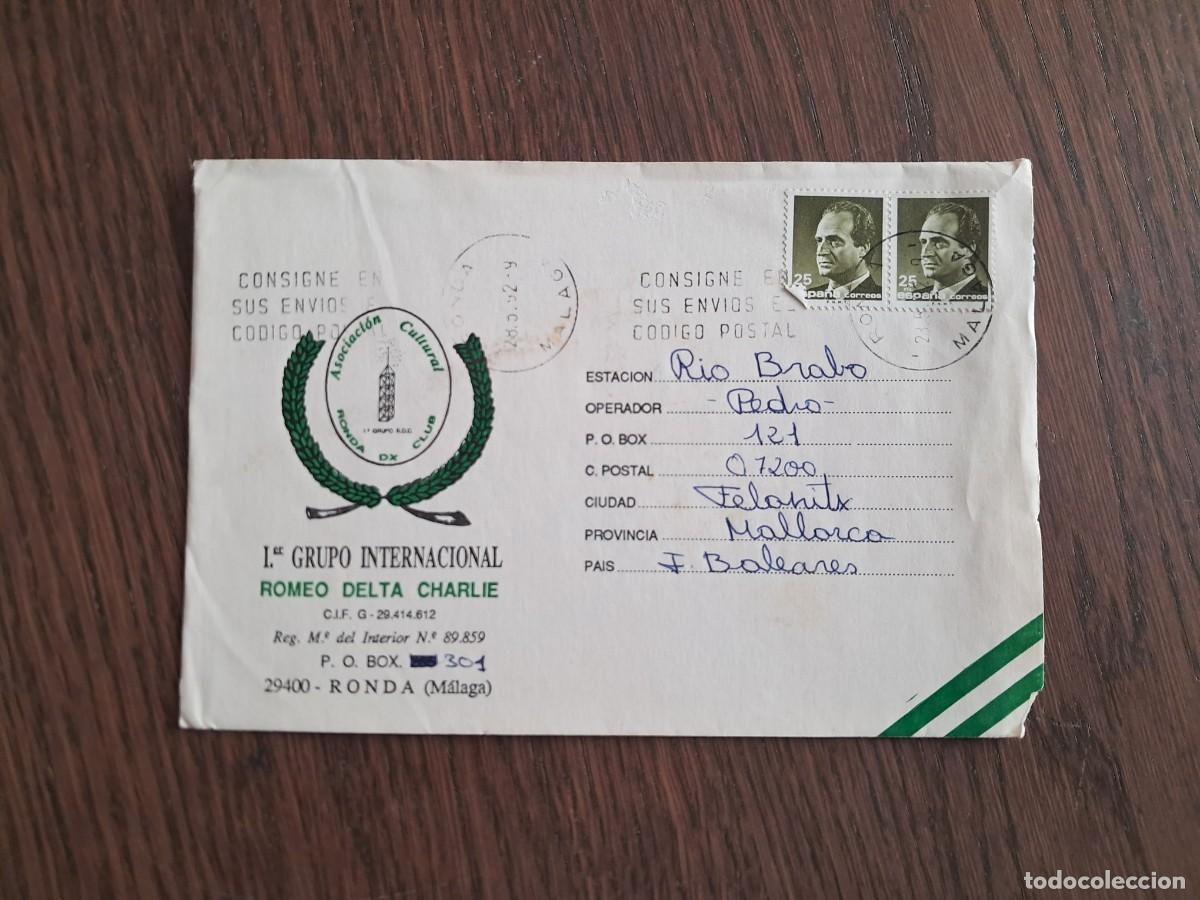 CONSIGNE EN
SUS ENVIOS E
CODIGO POSTAL
RONDA
28.5.92-9
MALAG
CONSIGNE EN
SUS ENVIOS EL
CODIGO POSTAL
MALAGA
25
españa correos
25
españa correos
Asociación Cultural
1.º GRUPO R.D.C
RONDA DX CLUB
I.er GRUPO INTERNACIONAL
ROMEO DELTA CHARLIE
C.I.F. G - 29.414.612
Reg. M.º del Interior N.º 89.859
P. O. BOX. 301
29400 - RONDA (Málaga)
ESTACION Rio Brabo
OPERADOR - Pedro -
P. O. BOX 121
C. POSTAL 07200
CIUDAD Felanitx
PROVINCIA Mallorca
PAIS I. Baleares
todocoleccion